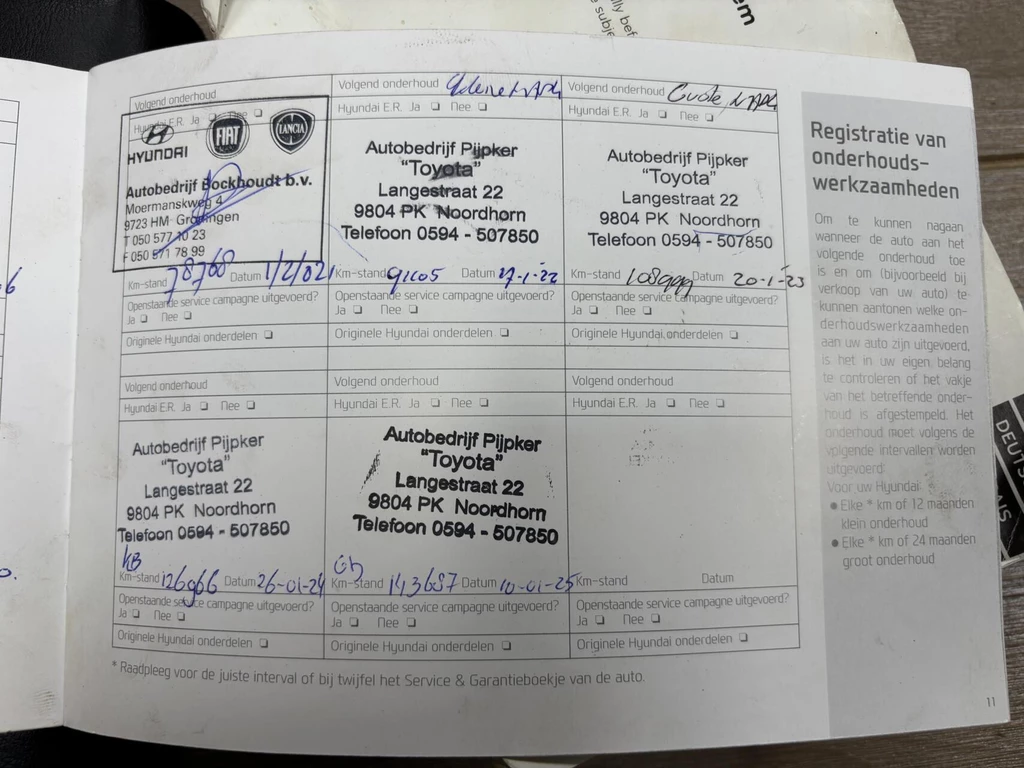 em
lly bef
e subje
Volgend onderhoud
Hyundai E.R. Ja ❏ Nee ❏
HYUNDAI
FIAT
LANCIA
Autobedrijf Bockhoudt b.v.
Moermanskweg 4
9723 HM Groningen
T 050 577 10 23
F 050 571 78 99
Km-stand 78768 Datum 1/2/021
Openstaande service campagne uitgevoerd?
Ja ❏ Nee ❏
Originele Hyundai onderdelen ❏
Volgend onderhoud
Hyundai E.R. Ja ❏ Nee ❏
Autobedrijf Pijpker
"Toyota"
Langestraat 22
9804 PK Noordhorn
Telefoon 0594 - 507850
Km-stand 91605 Datum 27-1-22
Openstaande service campagne uitgevoerd?
Ja ❏ Nee ❏
Originele Hyundai onderdelen ❏
Volgend onderhoud
Hyundai E.R. Ja ❏ Nee ❏
Autobedrijf Pijpker
"Toyota"
Langestraat 22
9804 PK Noordhorn
Telefoon 0594 - 507850
Km-stand 108999 Datum 20-1-23
Openstaande service campagne uitgevoerd?
Ja ❏ Nee ❏
Originele Hyundai onderdelen ❏
Volgend onderhoud
Hyundai E.R. Ja ❏ Nee ❏
Autobedrijf Pijpker
"Toyota"
Langestraat 22
9804 PK Noordhorn
Telefoon 0594 - 507850
KB
Km-stand 126966 Datum 26-01-24
Openstaande service campagne uitgevoerd?
Ja ❏ Nee ❏
Originele Hyundai onderdelen ❏
Volgend onderhoud
Hyundai E.R. Ja ❏ Nee ❏
Autobedrijf Pijpker
"Toyota"
Langestraat 22
9804 PK Noordhorn
Telefoon 0594 - 507850
Km-stand 143687 Datum 10-01-25
Openstaande service campagne uitgevoerd?
Ja ❏ Nee ❏
Originele Hyundai onderdelen ❏
Volgend onderhoud
Hyundai E.R. Ja ❏ Nee ❏
Km-stand Datum
Openstaande service campagne uitgevoerd?
Ja ❏ Nee ❏
Originele Hyundai onderdelen ❏
* Raadpleeg voor de juiste interval of bij twijfel het Service & Garantieboekje van de auto.
Registratie van
onderhouds-
werkzaamheden
Om te kunnen nagaan
wanneer de auto aan het
volgende onderhoud toe
is en om (bijvoorbeeld bij
verkoop van uw auto) te
kunnen aantonen welke on-
derhoudswerkzaamheden
aan uw auto zijn uitgevoerd,
is het in uw eigen belang
te controleren of het vakje
van het betreffende onder-
houd is afgestempeld. Het
onderhoud moet volgens de
volgende intervallen worden
uitgevoerd:
Voor uw Hyundai:
● Elke * km of 12 maanden
klein onderhoud
● Elke * km of 24 maanden
groot onderhoud
11
DEUTS
AIS